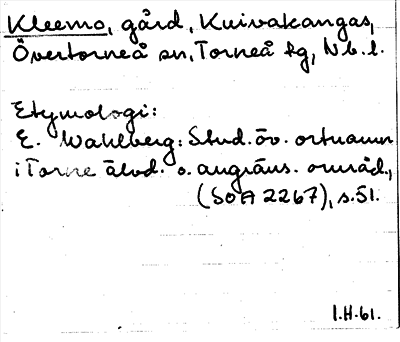 Kleemo, gård, Kuivakangas,
Övertorneå sn, Torneå tg, Nb. l.
Etymologi:
E. Wahlberg: Stud. öv. ortnamn
i Torne älvd. o. angräns. områd.,
(SOA 2267), s. 51.
I.H-61.